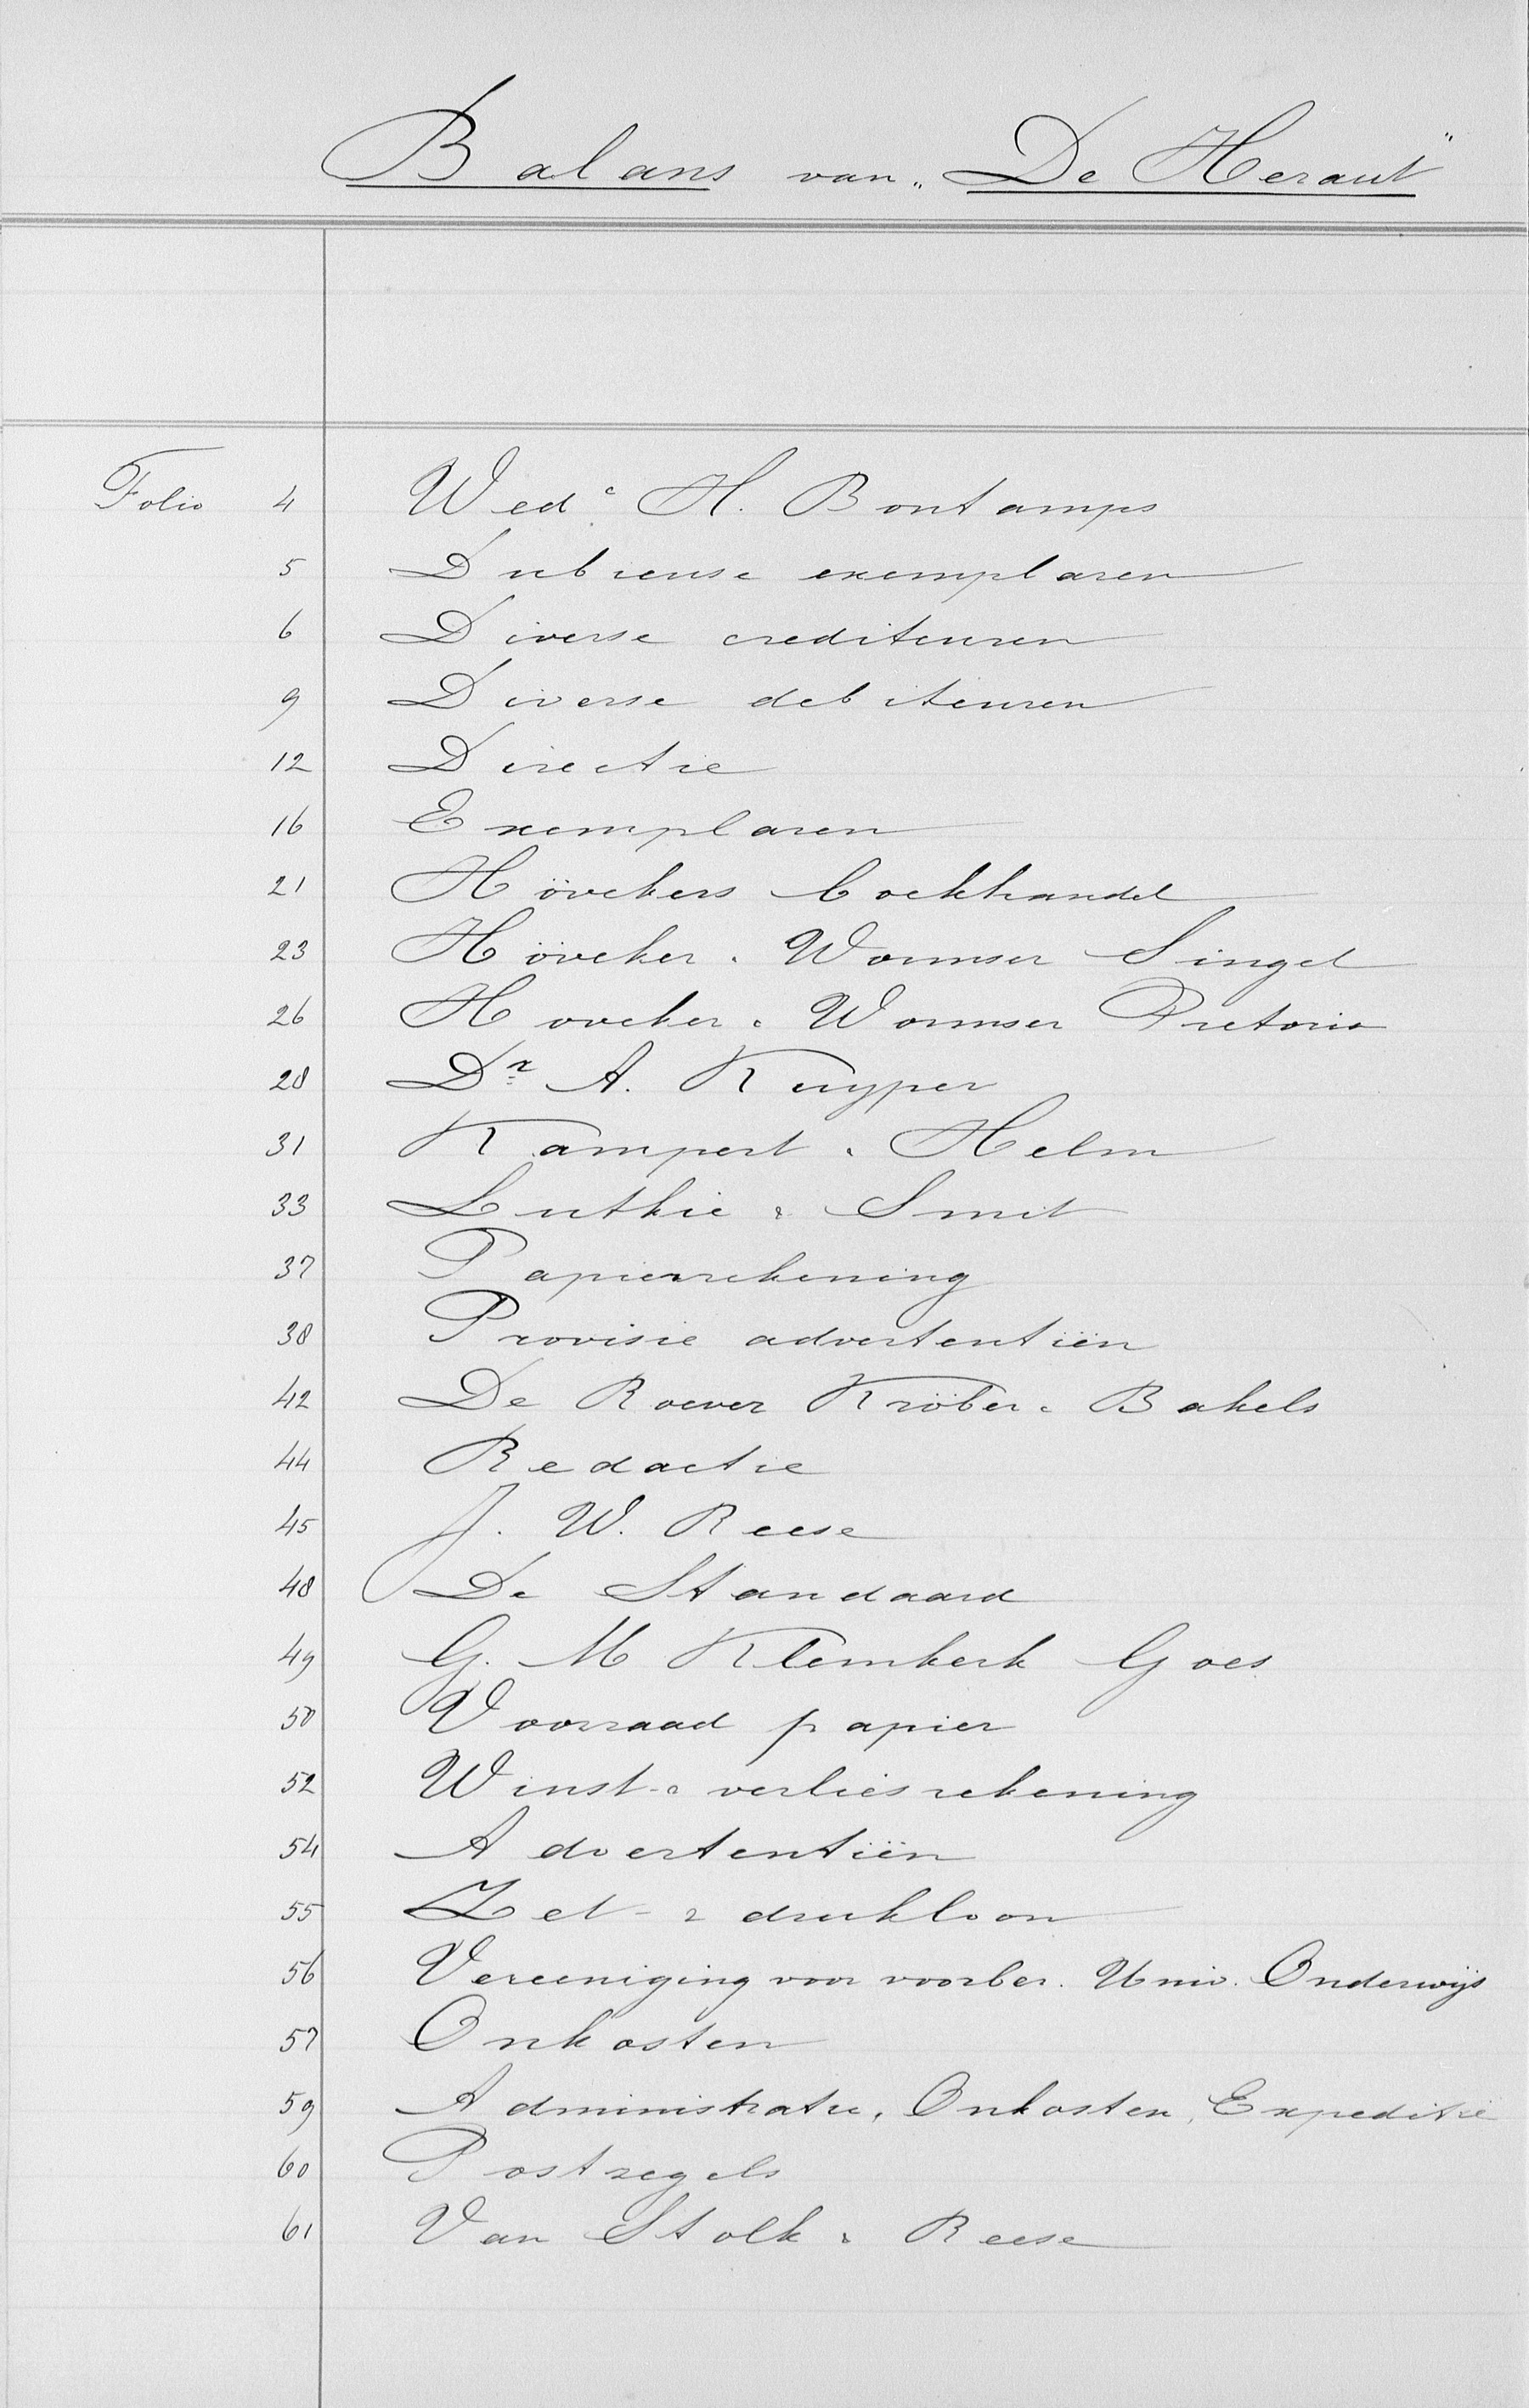 Balans van „De Heraut"
Folio 4 Wed.e H. Bontamps
5 Dubieuse exemplaren
6 Diverse crediteuren
9 Diverse debiteuren
12 Directie
16 Exemplaren
21 Hövekers boekhandel
23 Höveker & Wormser Singel
26 Hoveker & Wormser Pretoria
28 Dr. A. Kuyper
31 Kampert & Helm
33 Luthie & Smit
37 Papierrekening
38 Provisie advertentiën
42 De Roever Kröber & Bakels
44 Redactie
45 J. W. Reese
48 De Standaard
49 G. M Klemkerk Goes
50 Voorraad papier
52 Winst- & verliesrekening
54 Advertentiën
55 Zet- & drukloon
56 Vereeniging voor voorber. Univ. Onderwijs
57 Onkosten
59 Administratie, Onkosten, Expeditie
60 Postzegels
61 Van Stolk & Reese